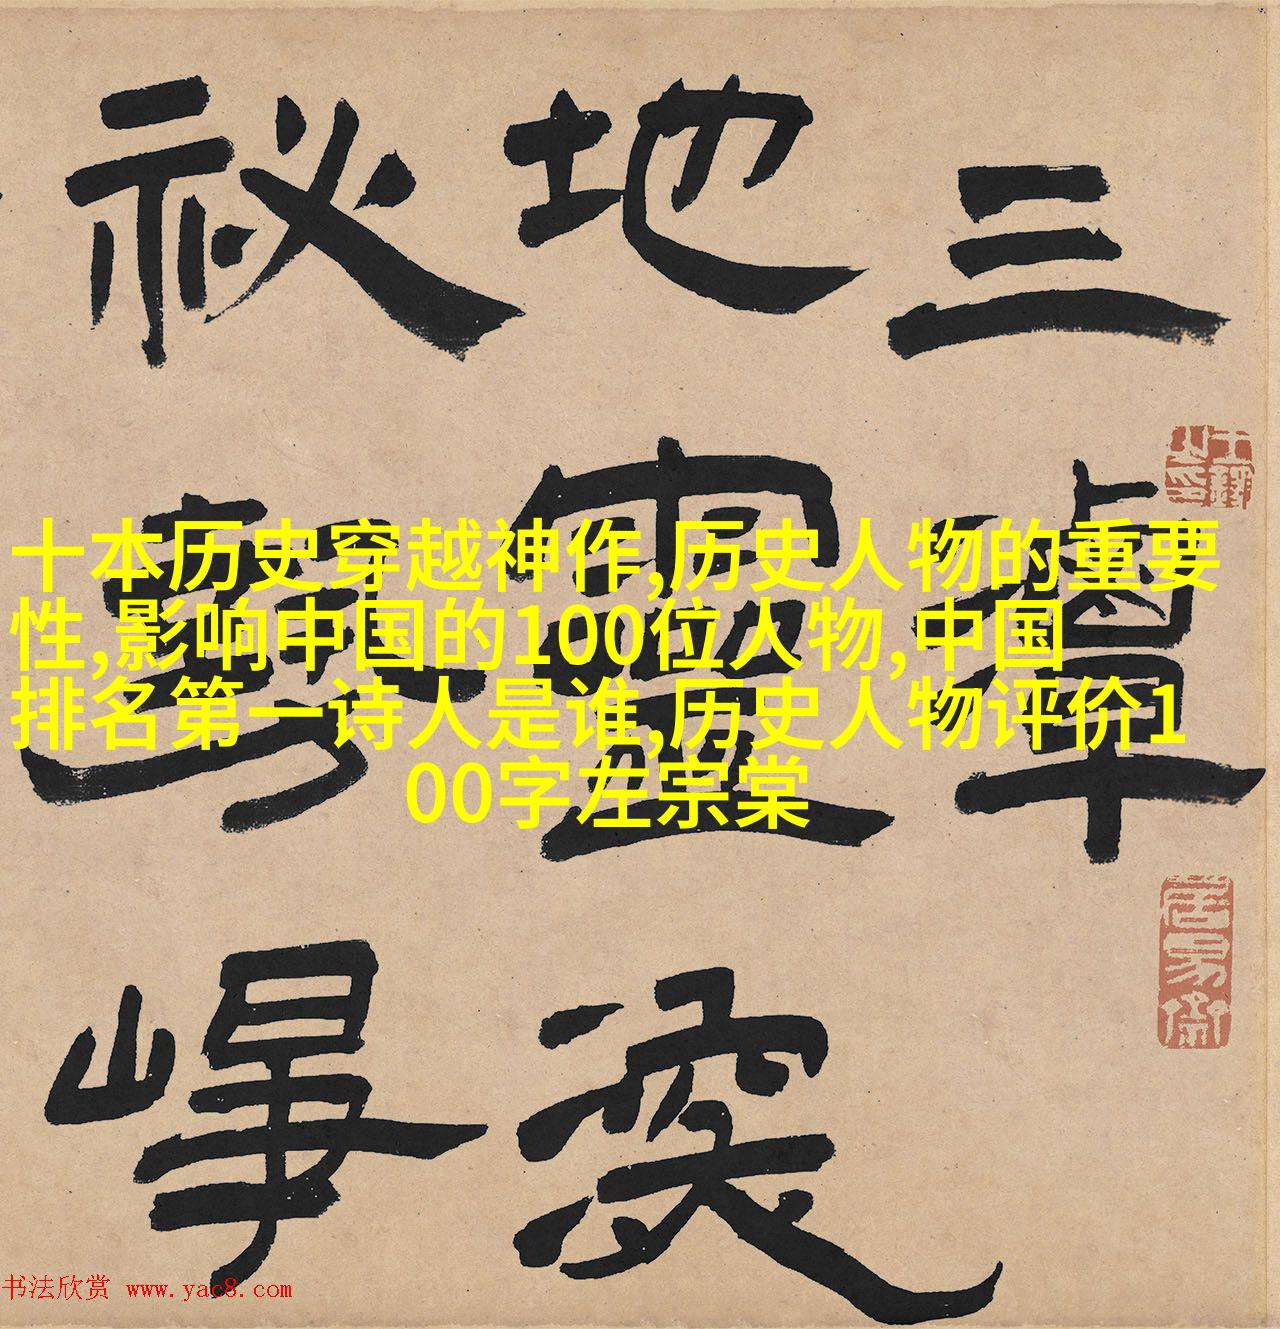 三
地靈
祕勢崢
十本历史穿越神作,历史人物的重要
性,影响中国的100位人物,中国
排名第一诗人是谁,历史人物评价1
00字左宗棠
书法欣赏 www.yac8.com